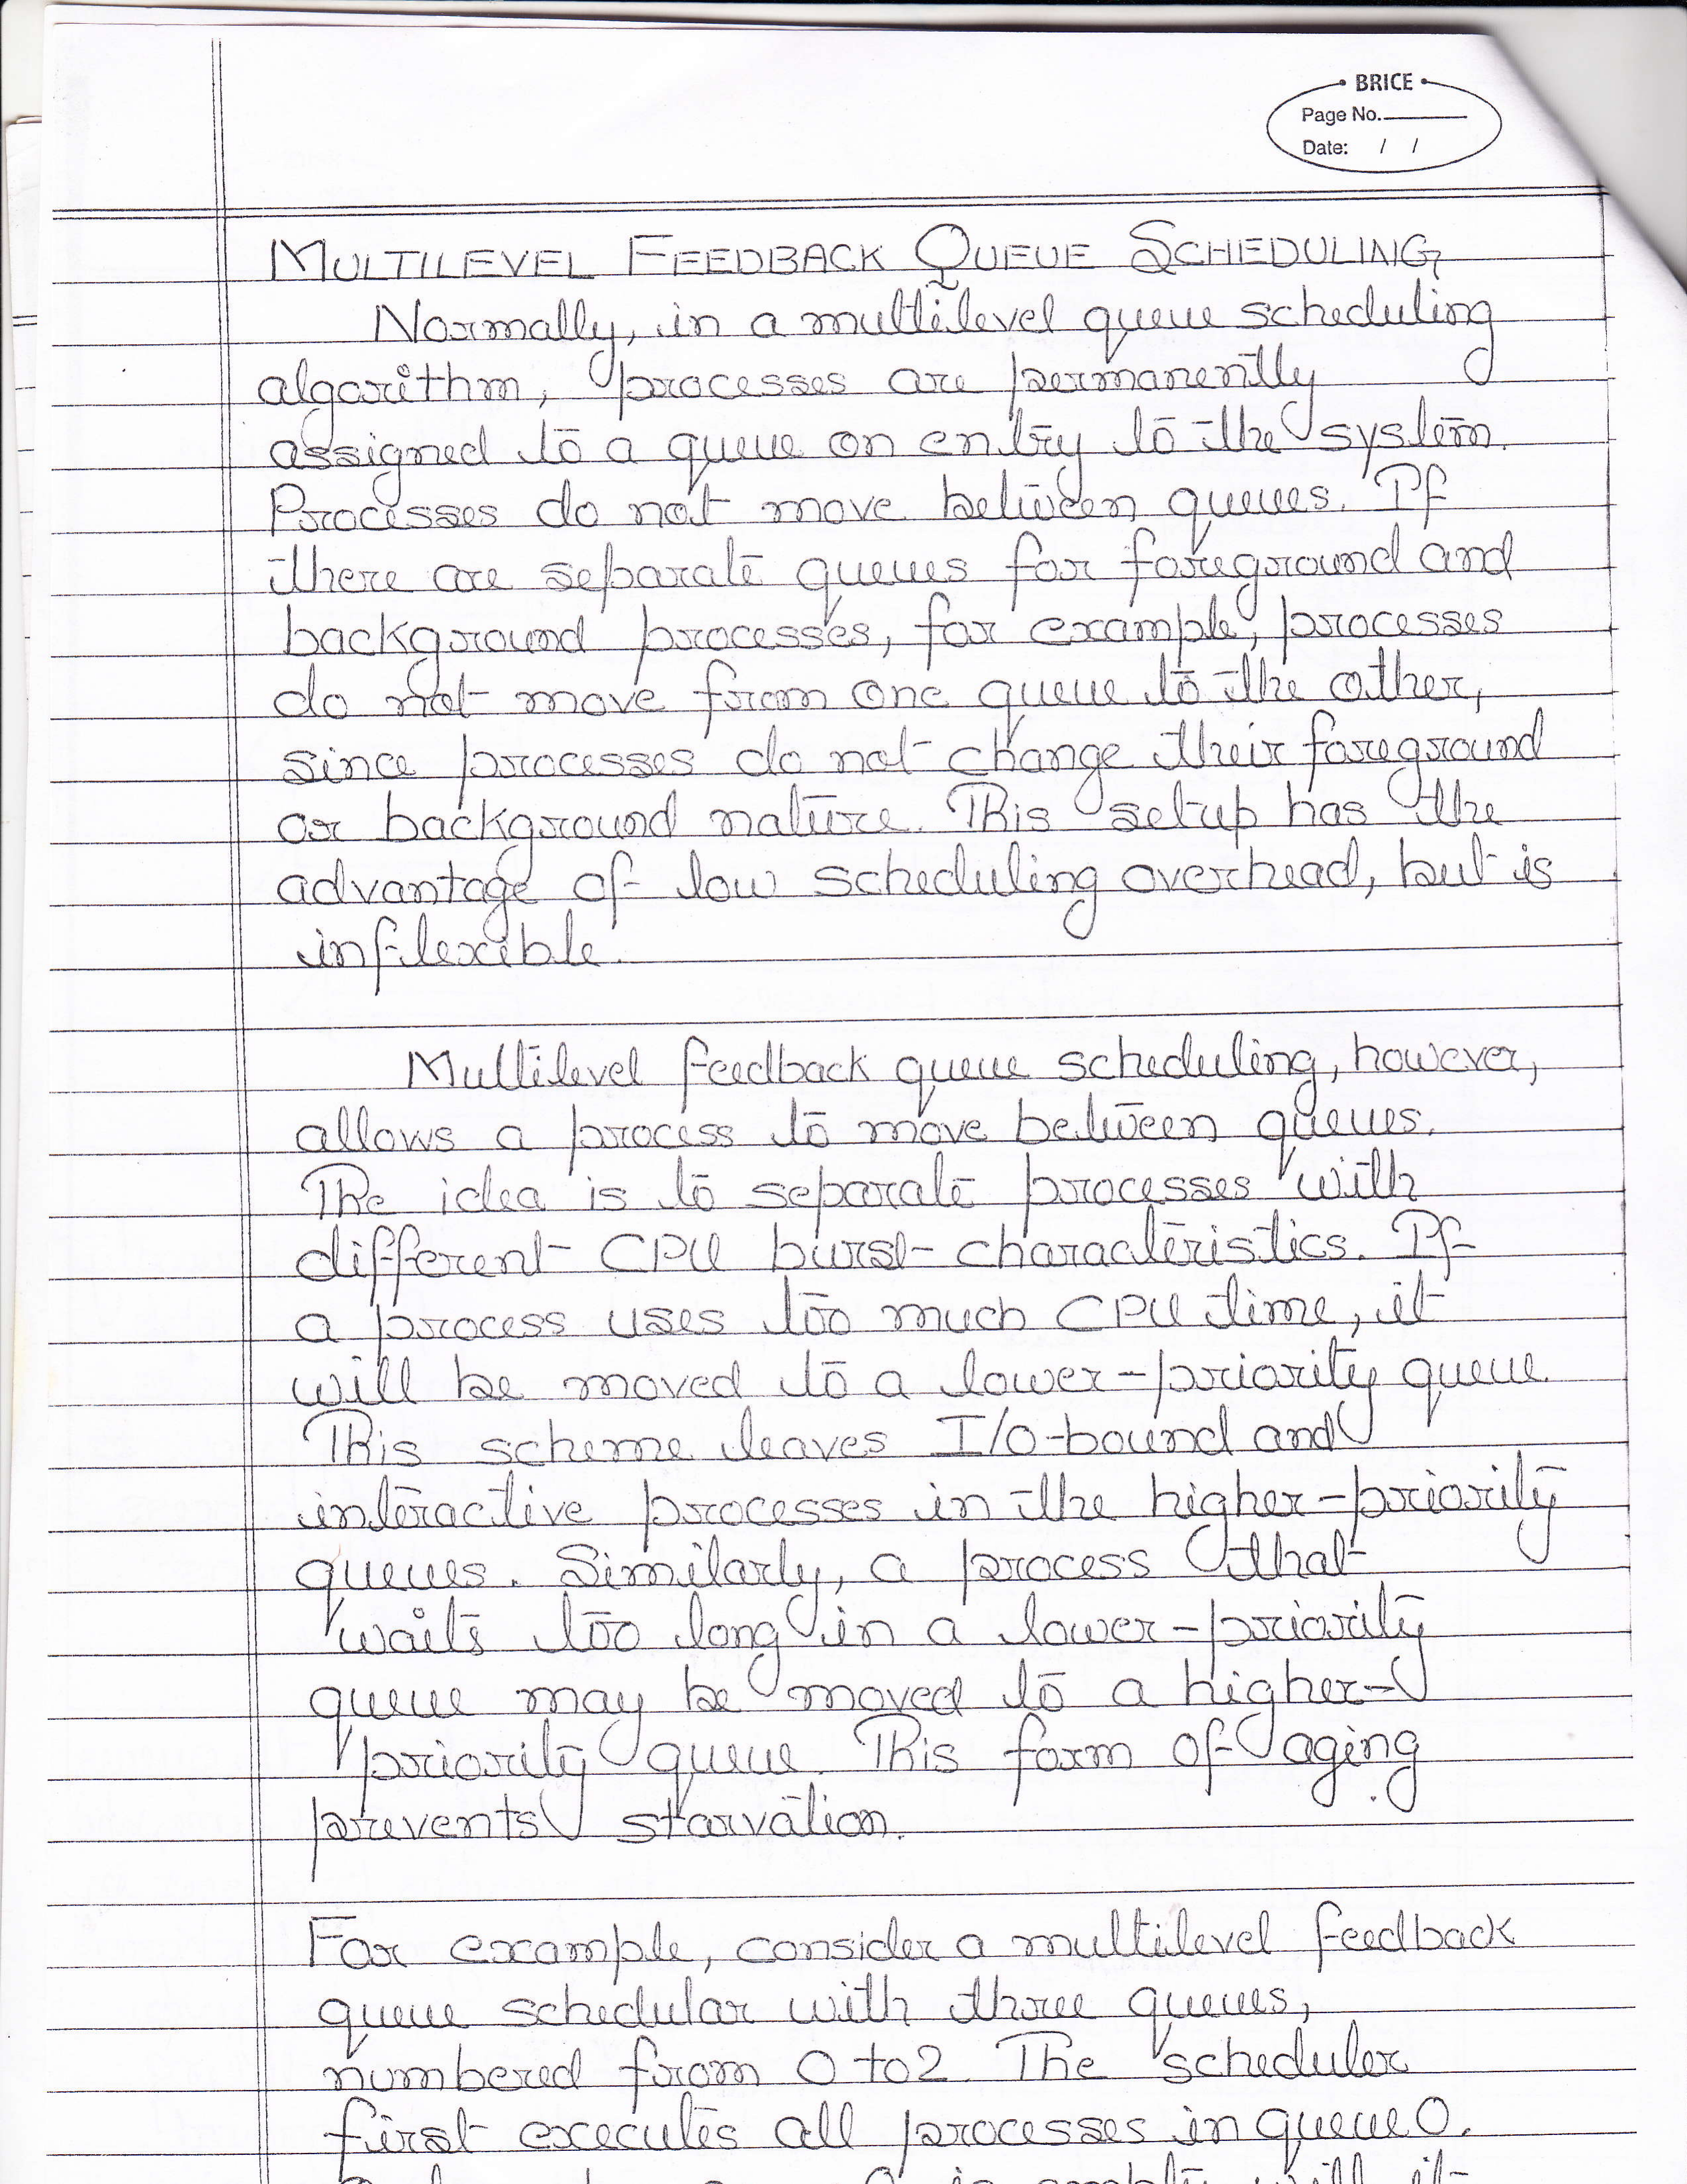 BRICE
Page No.
Date: / /
MULTILEVEL FEEDBACK QUEUE SCHEDULING
Normally, in a multilevel queue scheduling
algorithm, processes are permanently
assigned to a queue on entry to the system.
Processes do not move between queues. If
there are separate queues for foreground and
background processes, for example, processes
do not move from one queue to the other,
since processes do not change their foreground
or background nature. This setup has the
advantage of low scheduling overhead, but is
inflexible.
Multilevel feedback queue scheduling, however,
allows a process to move between queues.
The idea is to separate processes with
different CPU burst characteristics. If
a process uses too much CPU time, it
will be moved to a lower-priority queue.
This scheme leaves I/O-bound and
interactive processes in the higher-priority
queues. Similarly, a process that
waits too long in a lower-priority
queue may be moved to a higher-
priority queue. This form of aging
prevents starvation.
For example, consider a multilevel feedback
queue schedular with three queues,
numbered from 0 to 2. The scheduler
first executes all processes in queue 0.